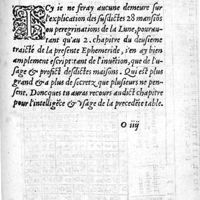 ICy ie ne feray aucune demeure sur
l'explication des susdictes 28 mansiõs
ou peregrinations de la Lune, pourau-
tant qu'au 2. chapitre du deusieme
traicté de la presente Ephemeride, i'en ay bien
amplement escript tant de l'inuẽtion, que de l'u-
sage & profict desdictes maisons. Qui est plus
grand & a plus de secretz que plusieurs ne pen-
sent. Doncques tu auras recours audict chapitre
pour l'intelligẽce & vsage de la precedẽte table.
O iiij